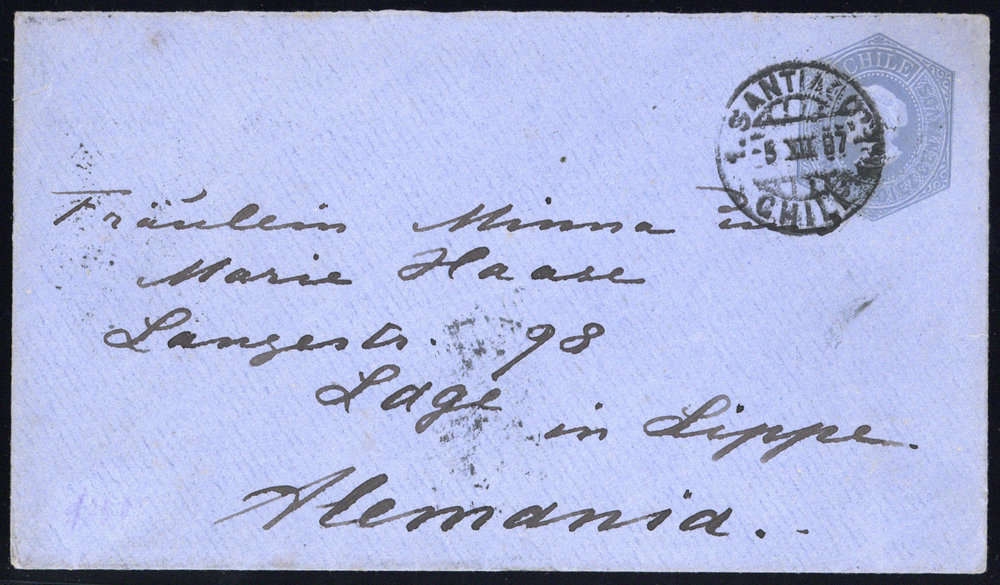 CHILE
1. SANTIAGO
5 XII 07
CHILE
Fräulein Minna u.
Marie Haase
Langestr. 98
Lage
in Lippe.
Alemania.